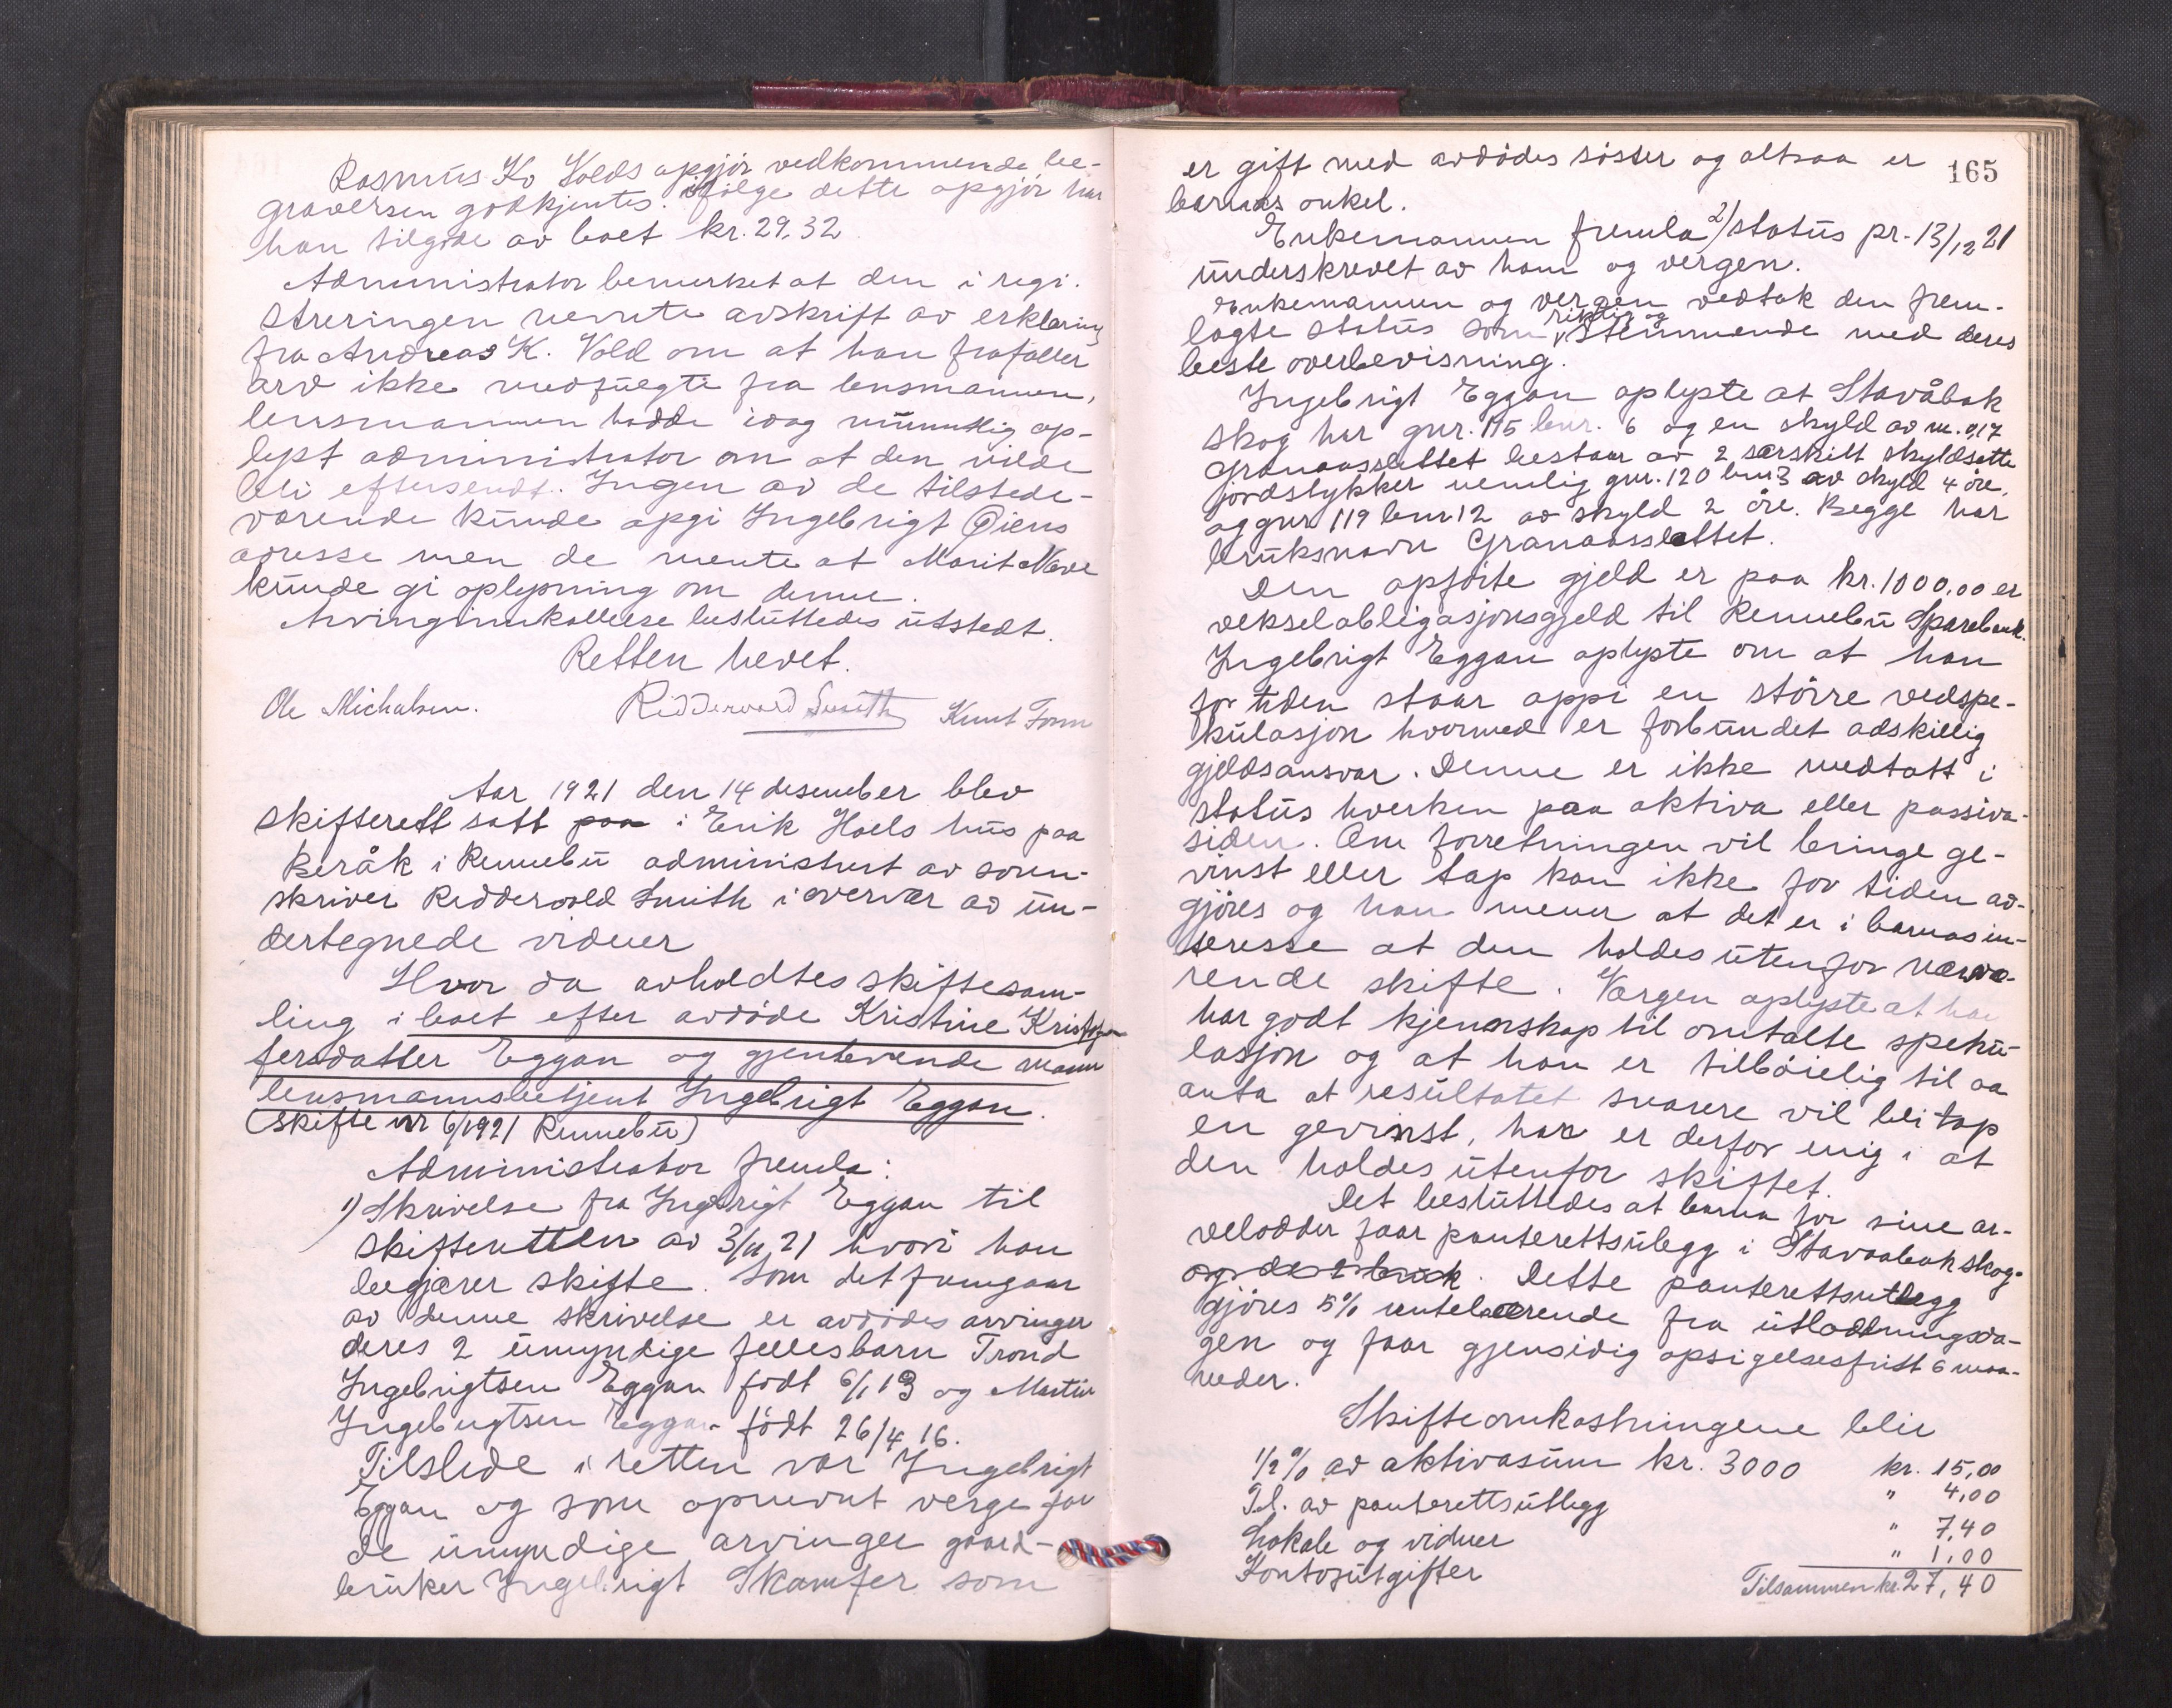 Rasmus K. Volds opgjör vedkommende be-
gravelsen godkjentes. ifölge dette opgjör har
han tilgode av boet kr. 29.32
Administrator bemerket at den i regi-
streringen nevnte avskrift av erklæring
fra Andreas K. Vold om at han frafaller
arv ikke medfulgte fra lensmannen,
lensmannen hadde idag mundtlig op-
lyst administrator om at den vilde
bli eftersendt. Ingen av de tilstede-
værende kunde opgi Ingebrigt Öiens
adresse men de mente at Marit
kunde gi oplysning om denne.
Arvinginnkallelse besluttedes utstedt.
Retten hevet.
Ole Michalsen. Riddervold Smith Knut
Aar 1921 den 14 desember blev
skifterett satt paa i Erik Haels hus paa
Beråk i Rennebu administrert av soren-
skriver Riddervold Smith i overvær av un-
dertegnede vidner
Hvor da avholdtes skiftesam-
ling i boet efter avdöde Kristine Kristof-
fersdatter Eggan og gjenlevende mann
lensmannsbetjent Ingebrigt Eggan.
(Skifte nr 6/1921 Rennebu)
Administrator fremla:
1) Skrivelse fra Ingebrigt Eggan til
skifteretten av 3/11 21 hvori han
begjærer skifte. Som det fremgaar
av denne skrivelse er avdödes arvinger
deres 2 umyndige fellesbarn Trond
Ingebrigtsen Eggan födt 6/1 13 og Martin
Ingebrigtsen Eggan födt 26/4 16.
Tilstede i retten var Ingebrigt
Eggan og som opnevnt verge for
de umyndige arvinger gaard-
bruker Ingebrigt Skamfer som
165
er gift med avdödes söster og altsaa er
barnas onkel.
Enkemannen fremla 2) status pr. 13/12 21
underskrevet av ham og vergen.
Enkemannen og vergen vedtok den frem-
lagte status som riktig og stemmende med deres
beste overbevisning.
Ingebrigt Eggan oplyste at Stavåbak
skog har gnr. 115 bnr. 6 og en skyld av m. 0,17
Granaasslettet bestaar av 2 særskilt skyldsatte
jordstykker nemlig gnr. 120 bnr 3 av skyld 4 öre,
og gnr 119 bnr 12 av skyld 2 öre. Begge har
bruksnavn Granaasslettet.
Den opförte gjeld er paa kr. 1000,00 er
vekselobligasjonsgjeld til Rennebu Sparebank.
Ingebrigt Eggan oplyste om at han
for tiden staar oppi en större vedspe-
kulasjon hvormed er forbundet adskillig
gjeldsansvar. Denne er ikke medtatt i
status hverken paa aktiva eller passiva-
siden. Om forretningen vil bringe ge-
vinst eller tap kan ikke for tiden av-
gjöres og han mener at det er i barnas in-
teresse at den holdes utenfor nærvæ-
rende skifte. Vergen oplyste at han
har godt kjennskap til omtalte speku-
lasjon og at han er tilböielig til aa
anta at resultatet snarere vil bli tap
en gevinst, han er derfor enig i at
den holdes utenfor skiftet.
Det besluttedes at barna for sine ar-
velodder faar panterettsutlegg i Stavaabak skog.
Dette panterettsutlegg
gjöres 5% rentebærende fra utlodningsda-
gen og faar gjensidig opsigelsesfrist 6 maa-
neder.
Skifteomkostningene blir
1/2 % av aktivasum kr. 3000 kr. 15,00
Tl. av panterettsutlegg " 4,00
Lokale og vidner " 7,40
Kontorutgifter " 1,00
Tilsammen kr. 27,40